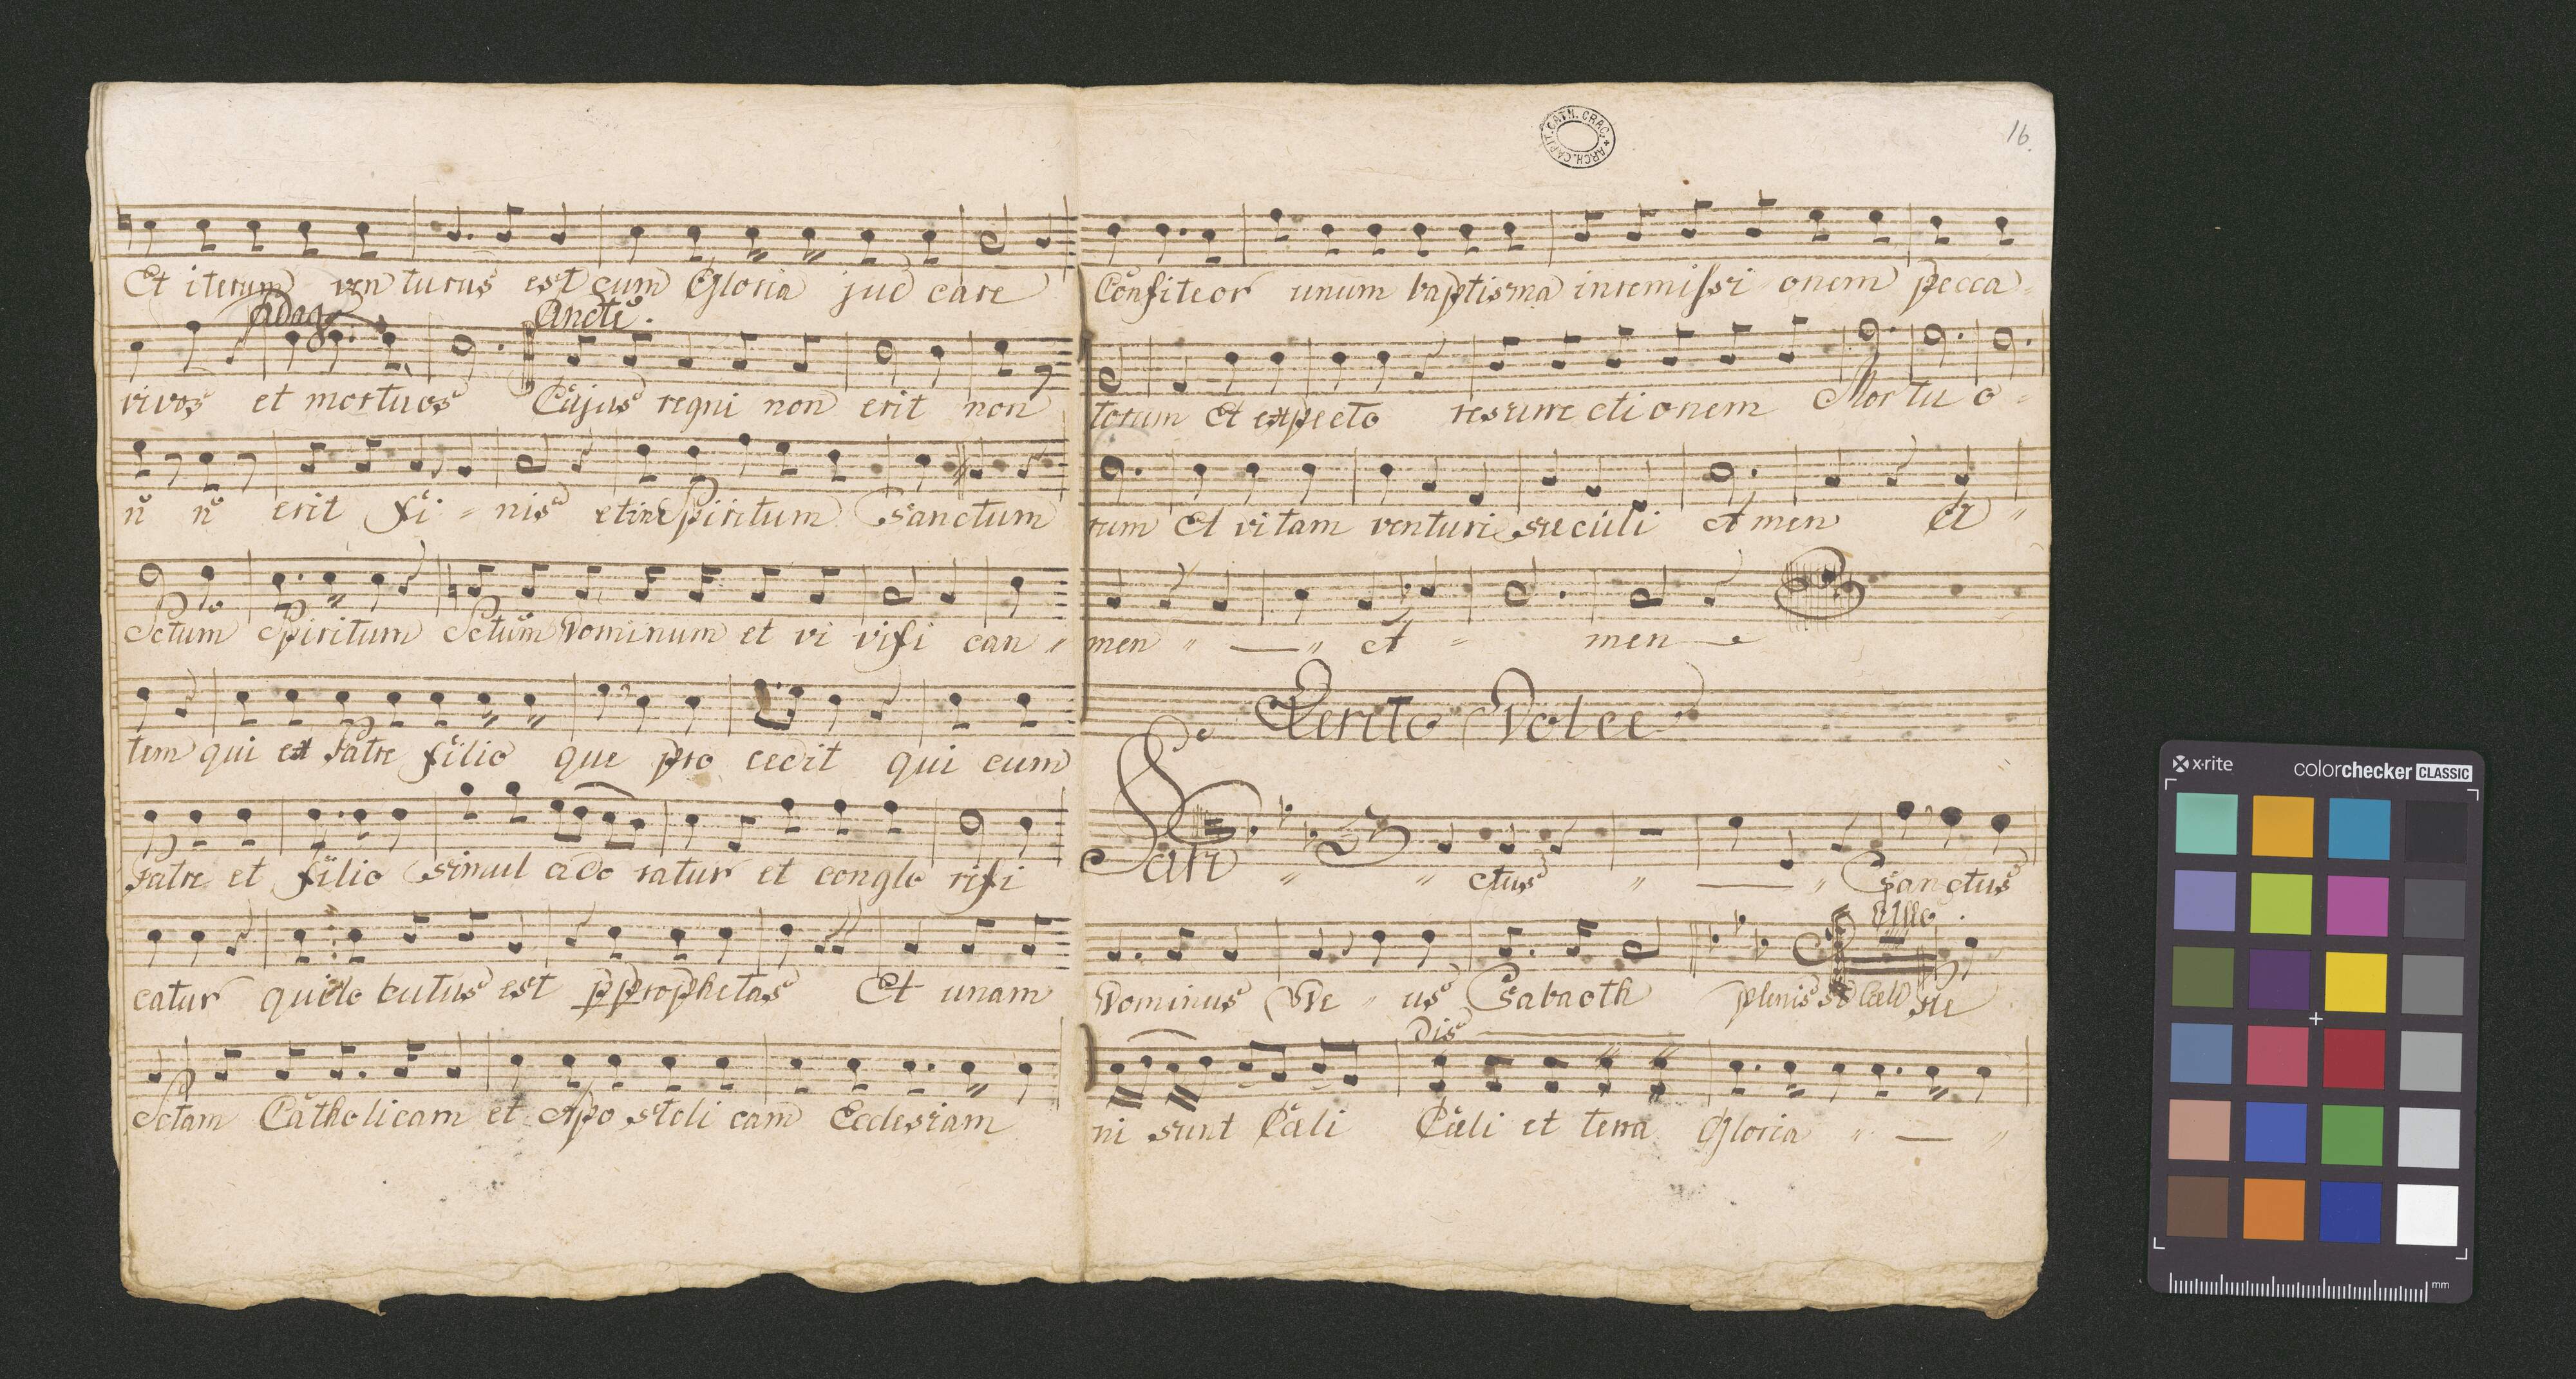 Et iterum ven turus est cum Gloria jud care
Adag
Andte.
vivos et mortuos Cujus regni non erit non
n n erit Fi - nis et in Spiritum Sanctum
Sctum Spiritum Sctum Dominum et vi vifi can
tem qui ex Patre filio que pro cedit qui cum
Patre et filio simul ado ratur et conglo rifi
catur qui lo cutus est p prophetas Et unam
Sctam Catholicam et Apo stoli cam Ecclesiam
ARCH. CAPIT. CATH. CRAC.
16.
Confiteor unum baptisma in remissi onem pecca
torum Et expecto resurre cti onem Mor tu o
rum Et vitam venturi sæculi A men A
men A men
Lento Dolce
San ctus Sanctus
Allo.
Dominus De us Sabaoth ple
Dis
ni sunt Cæli Cæli et terra Gloria
x·rite
colorchecker CLASSIC
mm